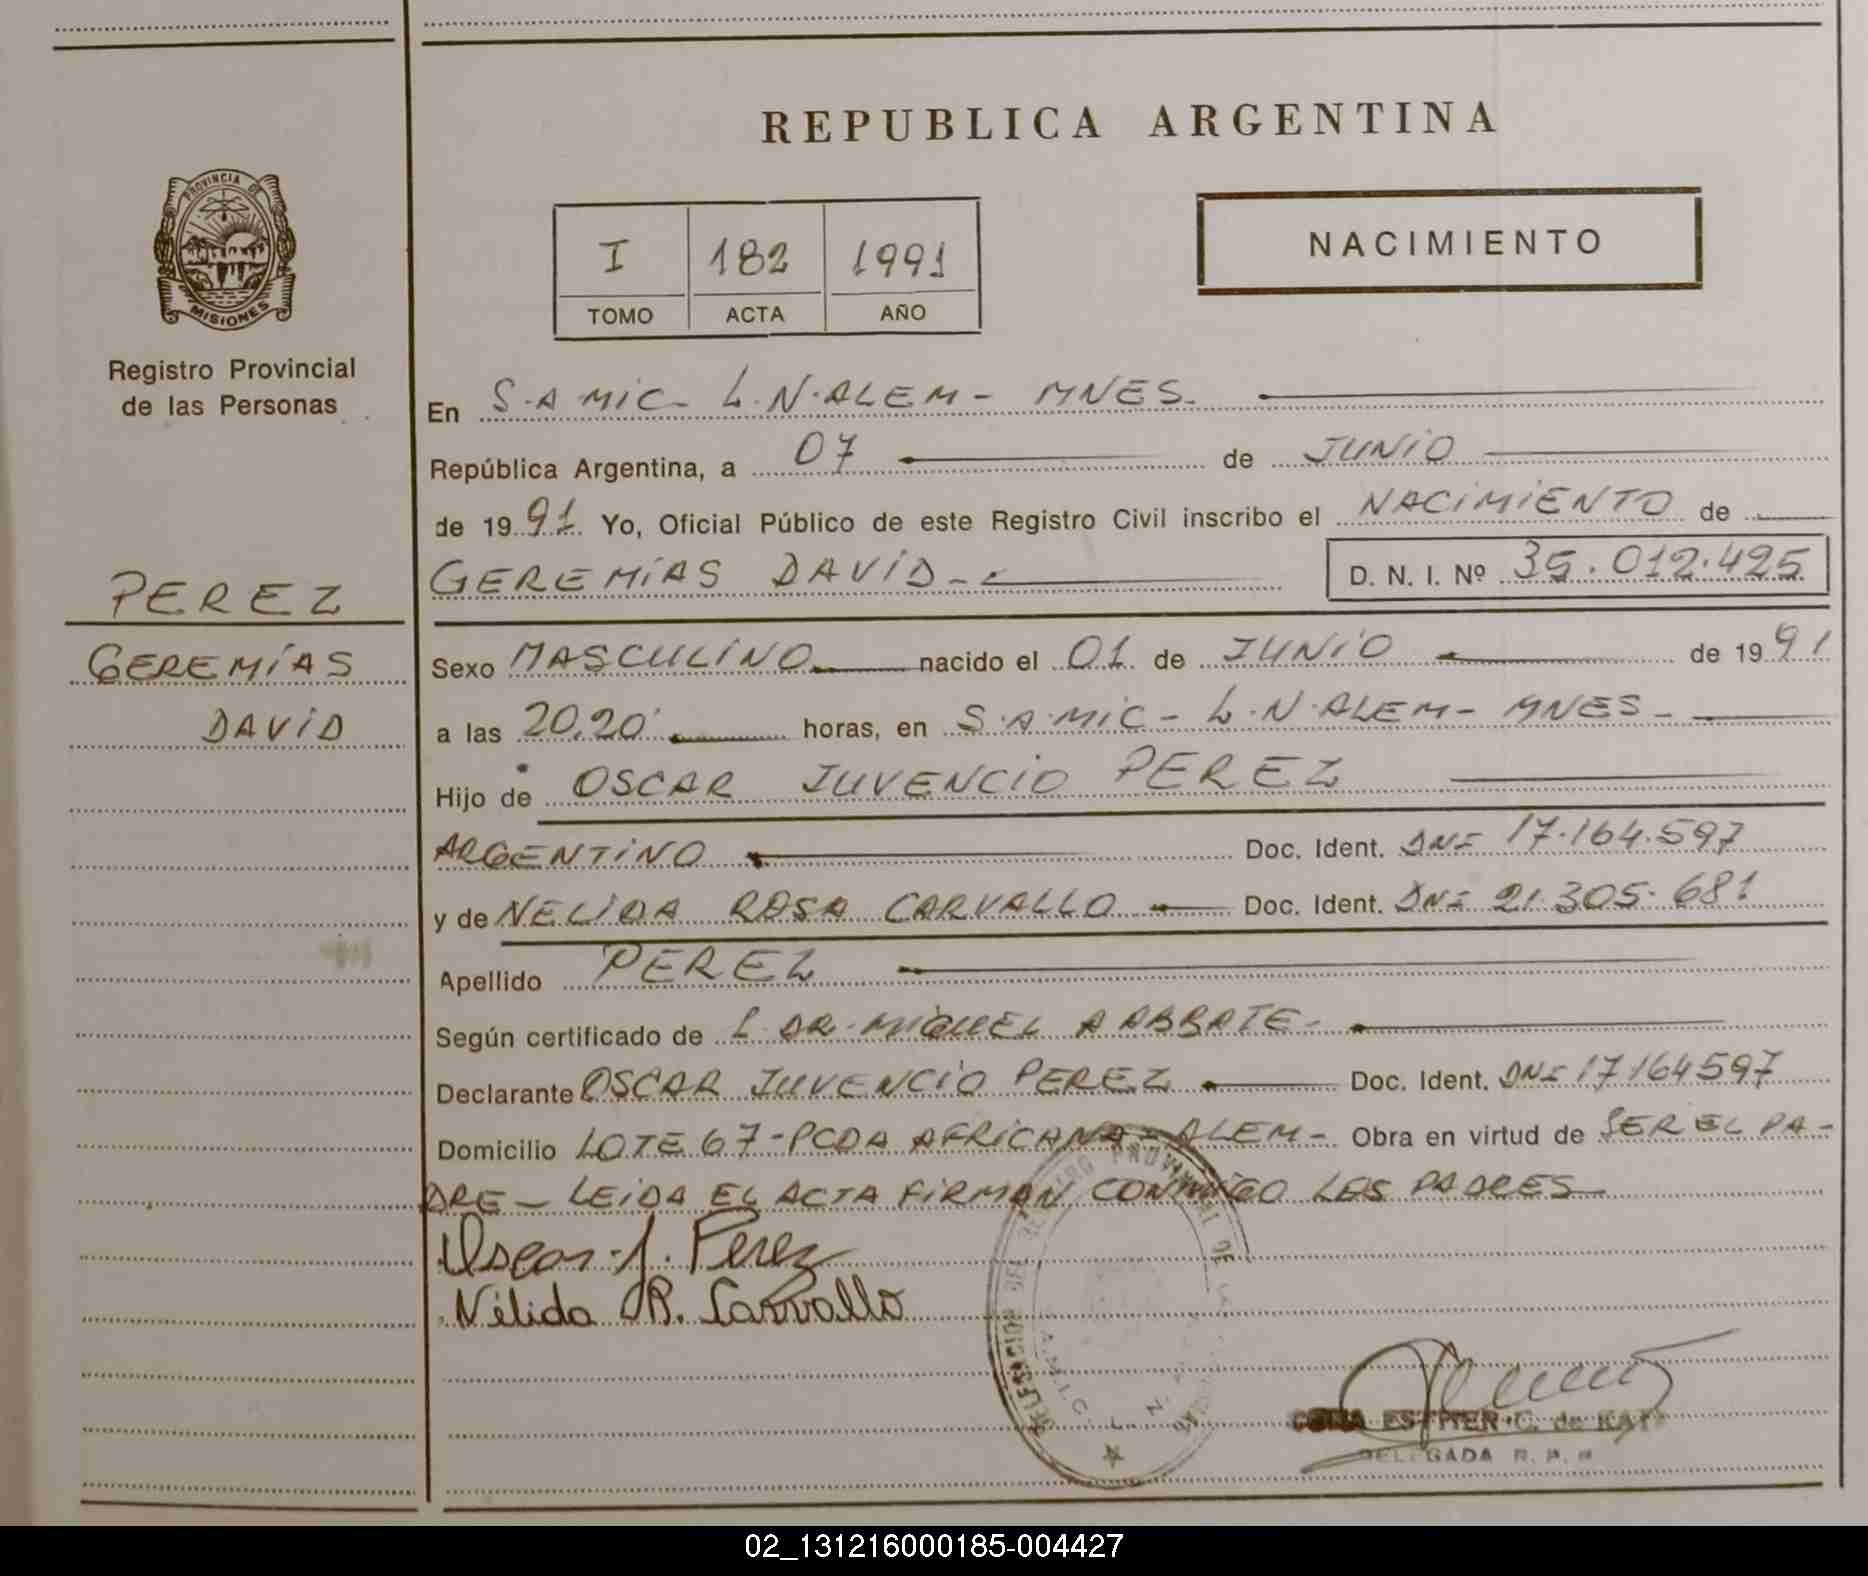 REPUBLICA ARGENTINA
PROVINCIA DE
MISIONES
Registro Provincial
de las Personas
I 182 1991
TOMO ACTA AÑO
NACIMIENTO
En S.A MIC- L.N.ALEM- MNES-
República Argentina, a 07 de JUNIO
de 1991. Yo, Oficial Público de este Registro Civil inscribo el NACIMIENTO de
GEREMÍAS DAVID- D. N. I. Nº 35.012.425
PEREZ
GEREMÍAS
DAVID
Sexo MASCULINO nacido el 01 de JUNIO de 1991
a las 20,20' horas, en S.A.MIC- L.N.ALEM- MNES-
Hijo de OSCAR JUVENCIO PEREZ
ARGENTINO Doc. Ident. DNI 17.164.597
y de NELIDA ROSA CARVALLO Doc. Ident. DNI 21.305.681
Apellido PEREZ
Según certificado de L DR. MIGUEL A ABBATE-
Declarante OSCAR JUVENCIO PEREZ Doc. Ident. DNI 17164597
Domicilio LOTE 67-PCDA AFRICANA-ALEM- Obra en virtud de SER EL PA-
DRE- LEIDA EL ACTA FIRMAN CONMIGO LOS PADRES-
Oscar J. Perez
Nélida R. Carvallo
DELEGACION DEL REGISTRO PROVINCIAL DE
ESTHER C. de
DELEGADA R. P. P.
02_131216000185-004427